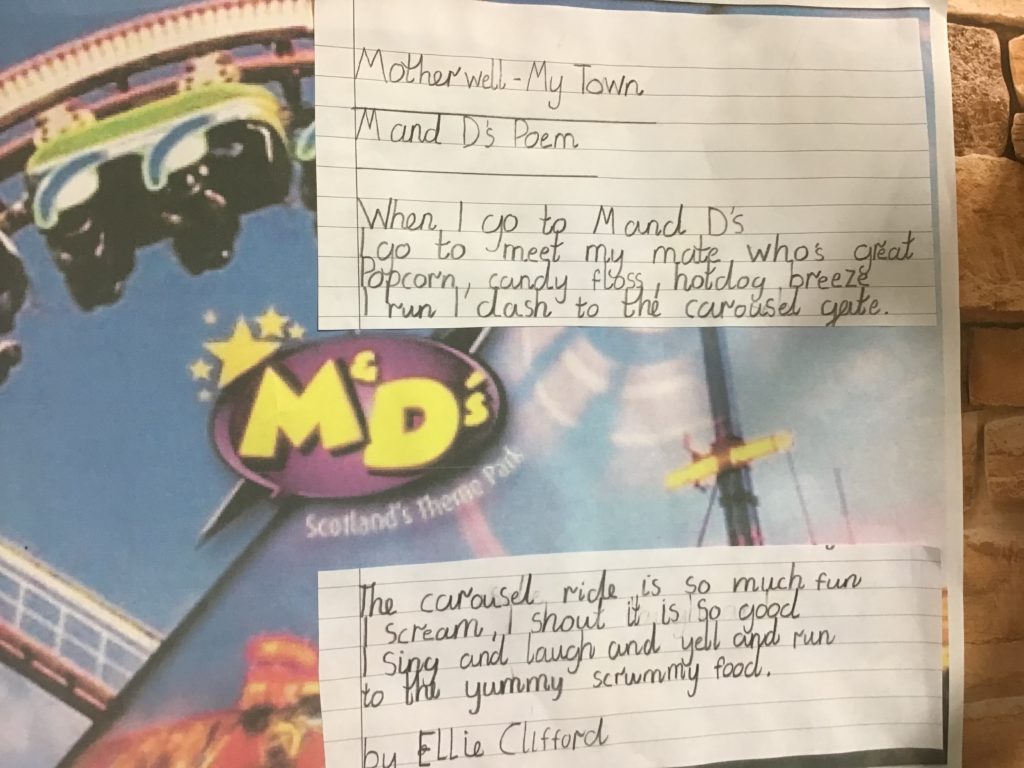 Motherwell - My Town
M and D's Poem
When I go to M and D's
I go to meet my mate who's great
Popcorn, candy floss, hotdog breeze
I run I dash to the carousel gate.
M&D's
Scotland's Theme Park
The carousel ride is so much fun
I scream, I shout it is so good
I sing and laugh and yell and run
to the yummy scrummy food.
by Ellie Clifford